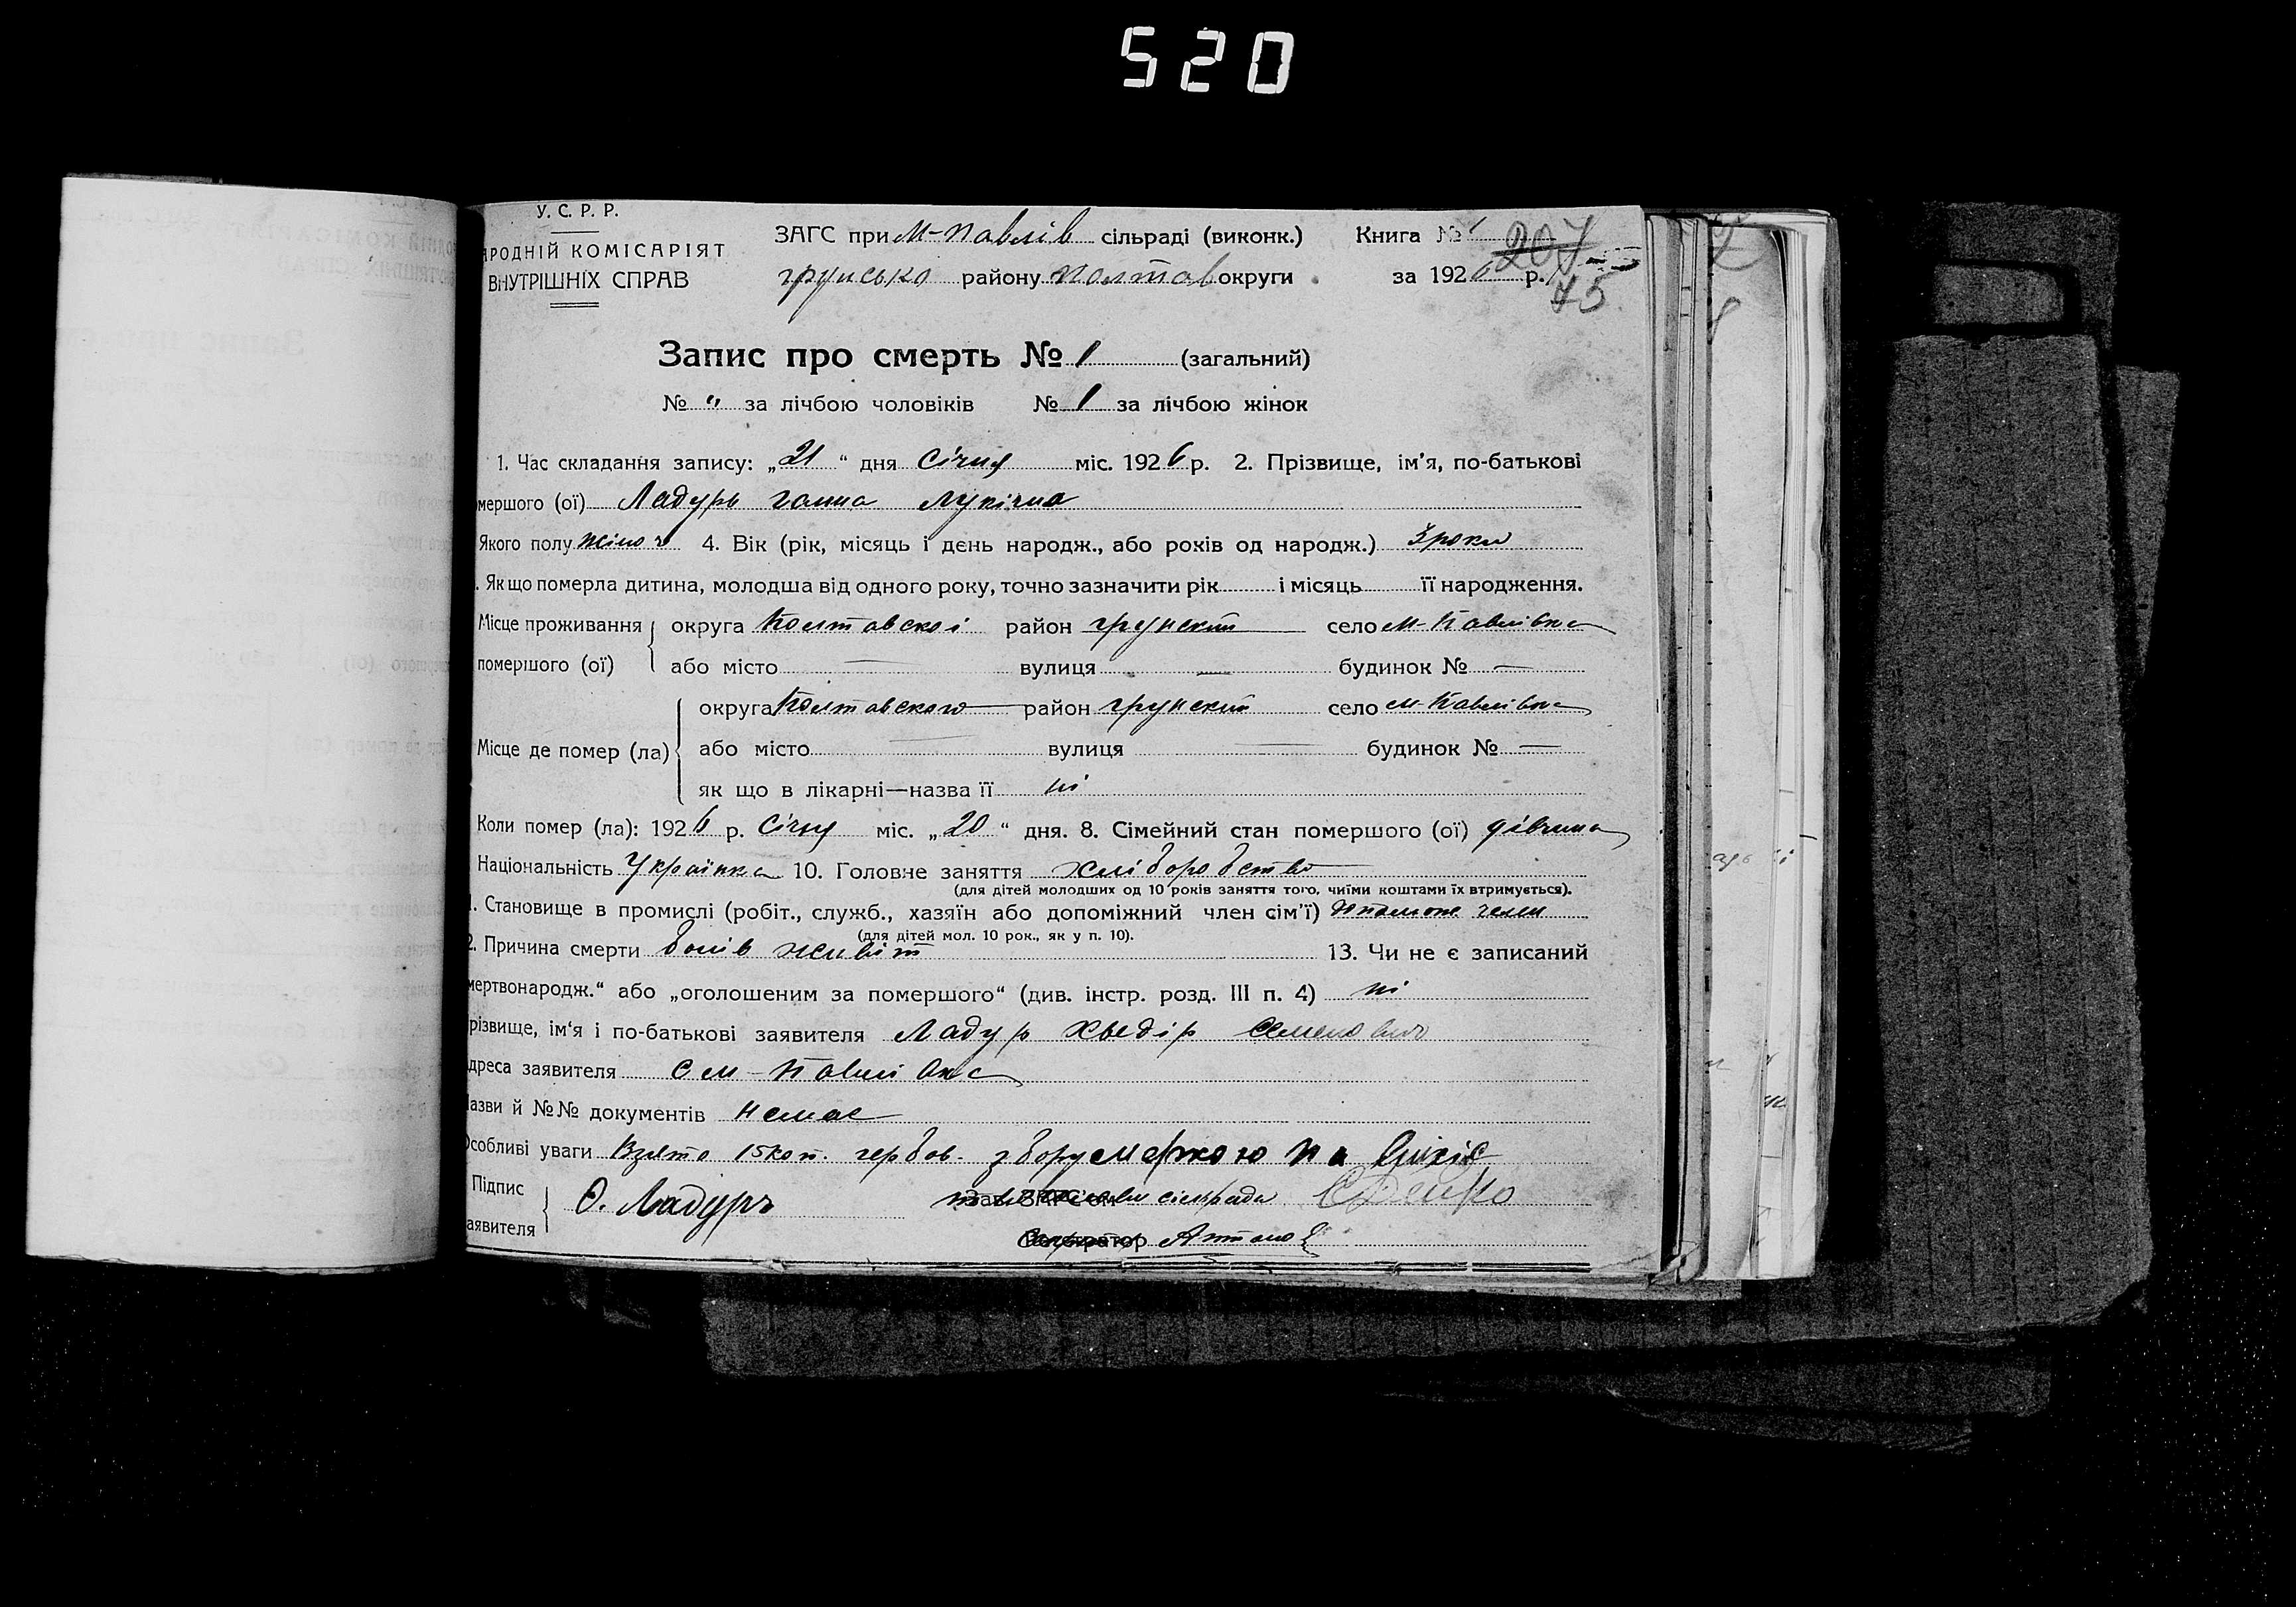 520
У. С. Р. Р.
АРОДНІЙ КОМІСАРІЯТ
ВНУТРІШНІХ СПРАВ
ЗАГС при М-Павлів сільраді (виконк.)
грунсько району Полтав округи
Книга № 1
за 1926 р.
207
75
Запис про смерть № 1 (загальний)
№ " за лічбою чоловіків № 1 за лічбою жінок
1. Час складання запису: „21“ дня Січня міс. 1926 р. 2. Прізвище, ім'я, по-батькові
мершого (ої) Ладурь Ганна Лукічна
Якого полу жіноч 4. Вік (рік, місяць і день народж., або років од народж.) 3 роки
. Якщо померла дитина, молодша від одного року, точно зазначити рік і місяць її народження.
Місце проживання помершого (ої)
округа Полтавскоі район грунский село М-Павлівка
або місто — вулиця — будинок № —
Місце де помер (ла)
округа Полтавского район грунский село М-Павлівка
або місто — вулиця — будинок № —
як що в лікарні—назва її ні
Коли помер (ла): 1926 р. Січня міс. „20“ дня. 8. Сімейний стан помершого (ої) дівчина
Національність Українка 10. Головне заняття хліборобство
(для дітей молодших од 10 років заняття того, чиїми коштами їх втримується).
1. Становище в промислі (робіт., служб., хазяїн або допоміжний член сім'ї)
(для дітей мол. 10 рок., як у п. 10).
2. Причина смерти болів живіт 13. Чи не є записаний
мертвонародж.“ або „оголошеним за помершого“ (див. інстр. розд. III п. 4) ні
різвище, ім'я і по-батькові заявителя Ладур Хведір Семенович
дреса заявителя С М-Павлівка
азви й №№ документів немає
Особливі уваги Взято 15 коп. гербов. збору маркою на
Підпис
аявителя
Ѳ. Ладурь
сільради